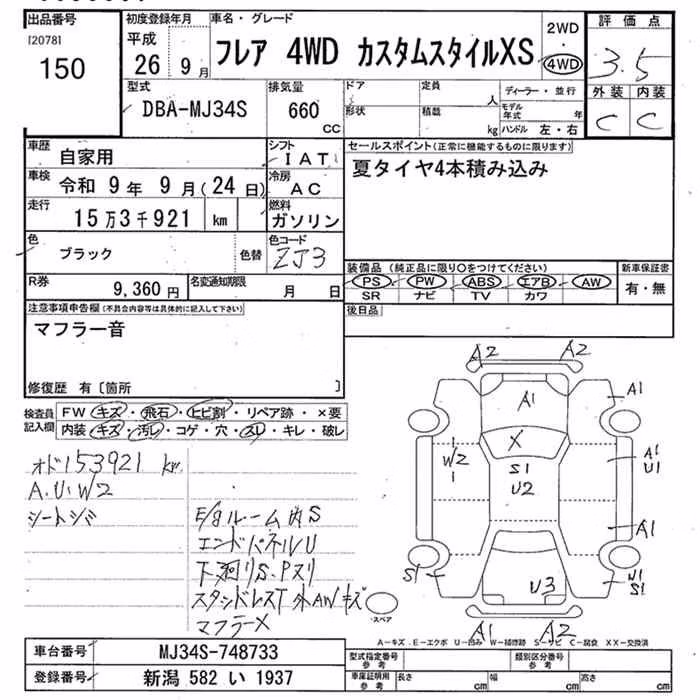 出品番号
[20781
150
初度登録年月
平成
26 9 月
車名・グレード
フレア 4WD カスタムスタイルXS
2WD
・
4WD
評価点
3.5
外装 内装
C C
型式
DBA-MJ34S
排気量
660
CC
ドア
形状
定員
人
積載
kg
ディーラー・並行
モデル年式
年
ハンドル 左・右
車歴
自家用
シフト
IAT
セールスポイント(正常に機能するものに限ります)
夏タイヤ4本積み込み
車検
令和 9 年 9 月 ( 24 日)
冷房
AC
走行
15 万 3 千 921 km
燃料
ガソリン
色
ブラック
色替
色コード
ZJ3
装備品 (純正品に限り○をつけてください)
PS PW ABS エアB AW
SR ナビ TV カワ
新車保証書
有・無
R券
9,360 円
名変通知期限
月 日
後日品
注意事項申告欄(不具合内容等は具体的に記入して下さい)
マフラー音
修復歴 有〔箇所 〕
検査員
記入欄
FW キズ・飛石・ヒビ割・リペア跡・×要
内装 キズ・汚レ・コゲ・穴・スレ・キレ・破レ
オド153921 km
A.U.W2
シートシミ
E/gルーム内S
エンドパネルU
下廻りS.Pヌリ
スタンドレスT 外AWキズ
マフラーX
A2 A2
A1 A1
X
W2
1
S1
U2
A1
U1
A1
S1
U3
U1
S1
A1 A2
スペア
A-キズ E-エクボ U-凹み W-補修跡 S-サビ C-腐食 XX-交換済
車台番号
MJ34S-748733
登録番号
新潟 582 い 1937
型式指定番号
参考
類別区分番号
参考
車庫証明用
参考
長さ
cm
幅
cm
高さ
cm